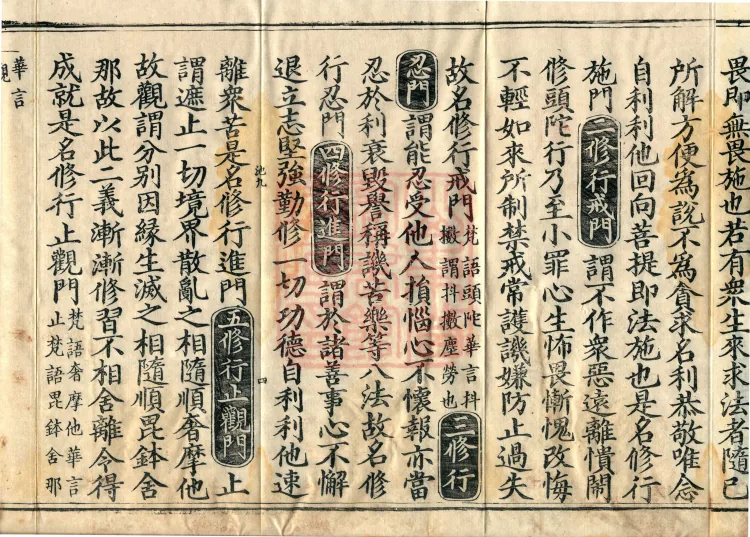 畏即無畏施也若有衆生來求法者隨己
所解方便爲說不爲貪求名利恭敬唯念
自利利他回向菩提即法施也是名修行
施門二修行戒門謂不作衆惡遠離憒閙
修頭陀行乃至小罪心生怖畏慚愧改悔
不輕如來所制禁戒常護譏嫌防止過失
故名修行戒門梵語頭陀華言抖
擻謂抖擻塵勞也三修行
忍門謂能忍受他人損惱心不懷報亦當
忍於利衰毀譽稱譏苦樂等八法故名修
行忍門四修行進門謂於諸善事心不懈
退立志堅強勤修一切功德自利利他速
池九
四
離衆苦是名修行進門五修行止觀門止
謂遮止一切境界散亂之相隨順奢摩他
故觀謂分别因緣生滅之相隨順毘鉢舍
那故以此二義漸漸修習不相舍離令得
成就是名修行止觀門梵語奢摩他華言
止梵語毘鉢舍那
華言
觀